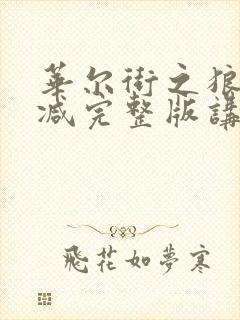 華尔街之狼
减完整版講
飛花如夢寒